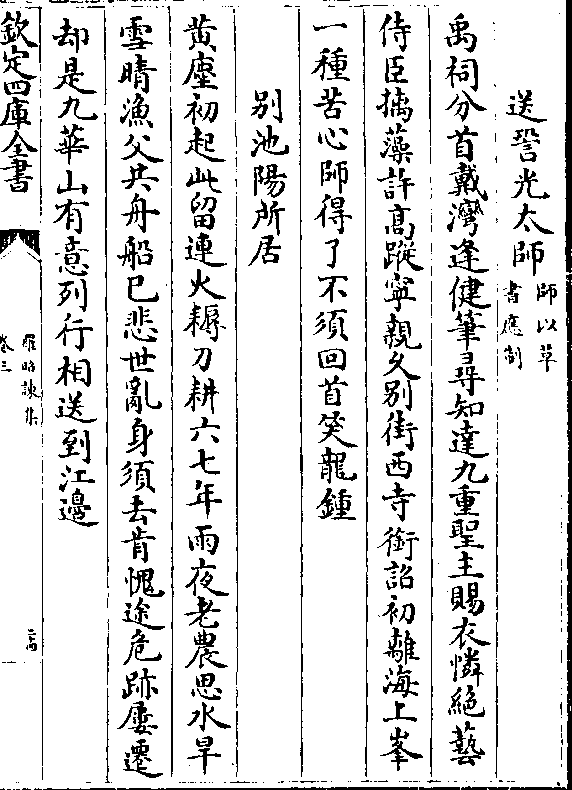 送䛒光太師師以草書應制
禹祠分首戴灣逢健筆尋知達九重聖主賜衣憐絶藝
侍臣摛藻許髙蹤寧親久别街西寺銜詔初離海上峯
一種苦心師得了不須回首笑龍鍾
别池陽所居
黄塵初起此留連火耨刀耕六七年雨夜老農思水旱
雪晴漁父共舟船已悲世亂身須去肯愧途危跡屢遷
却是九華山有意列行相送到江邊
欽定四庫全書
羅昭諫集
卷三